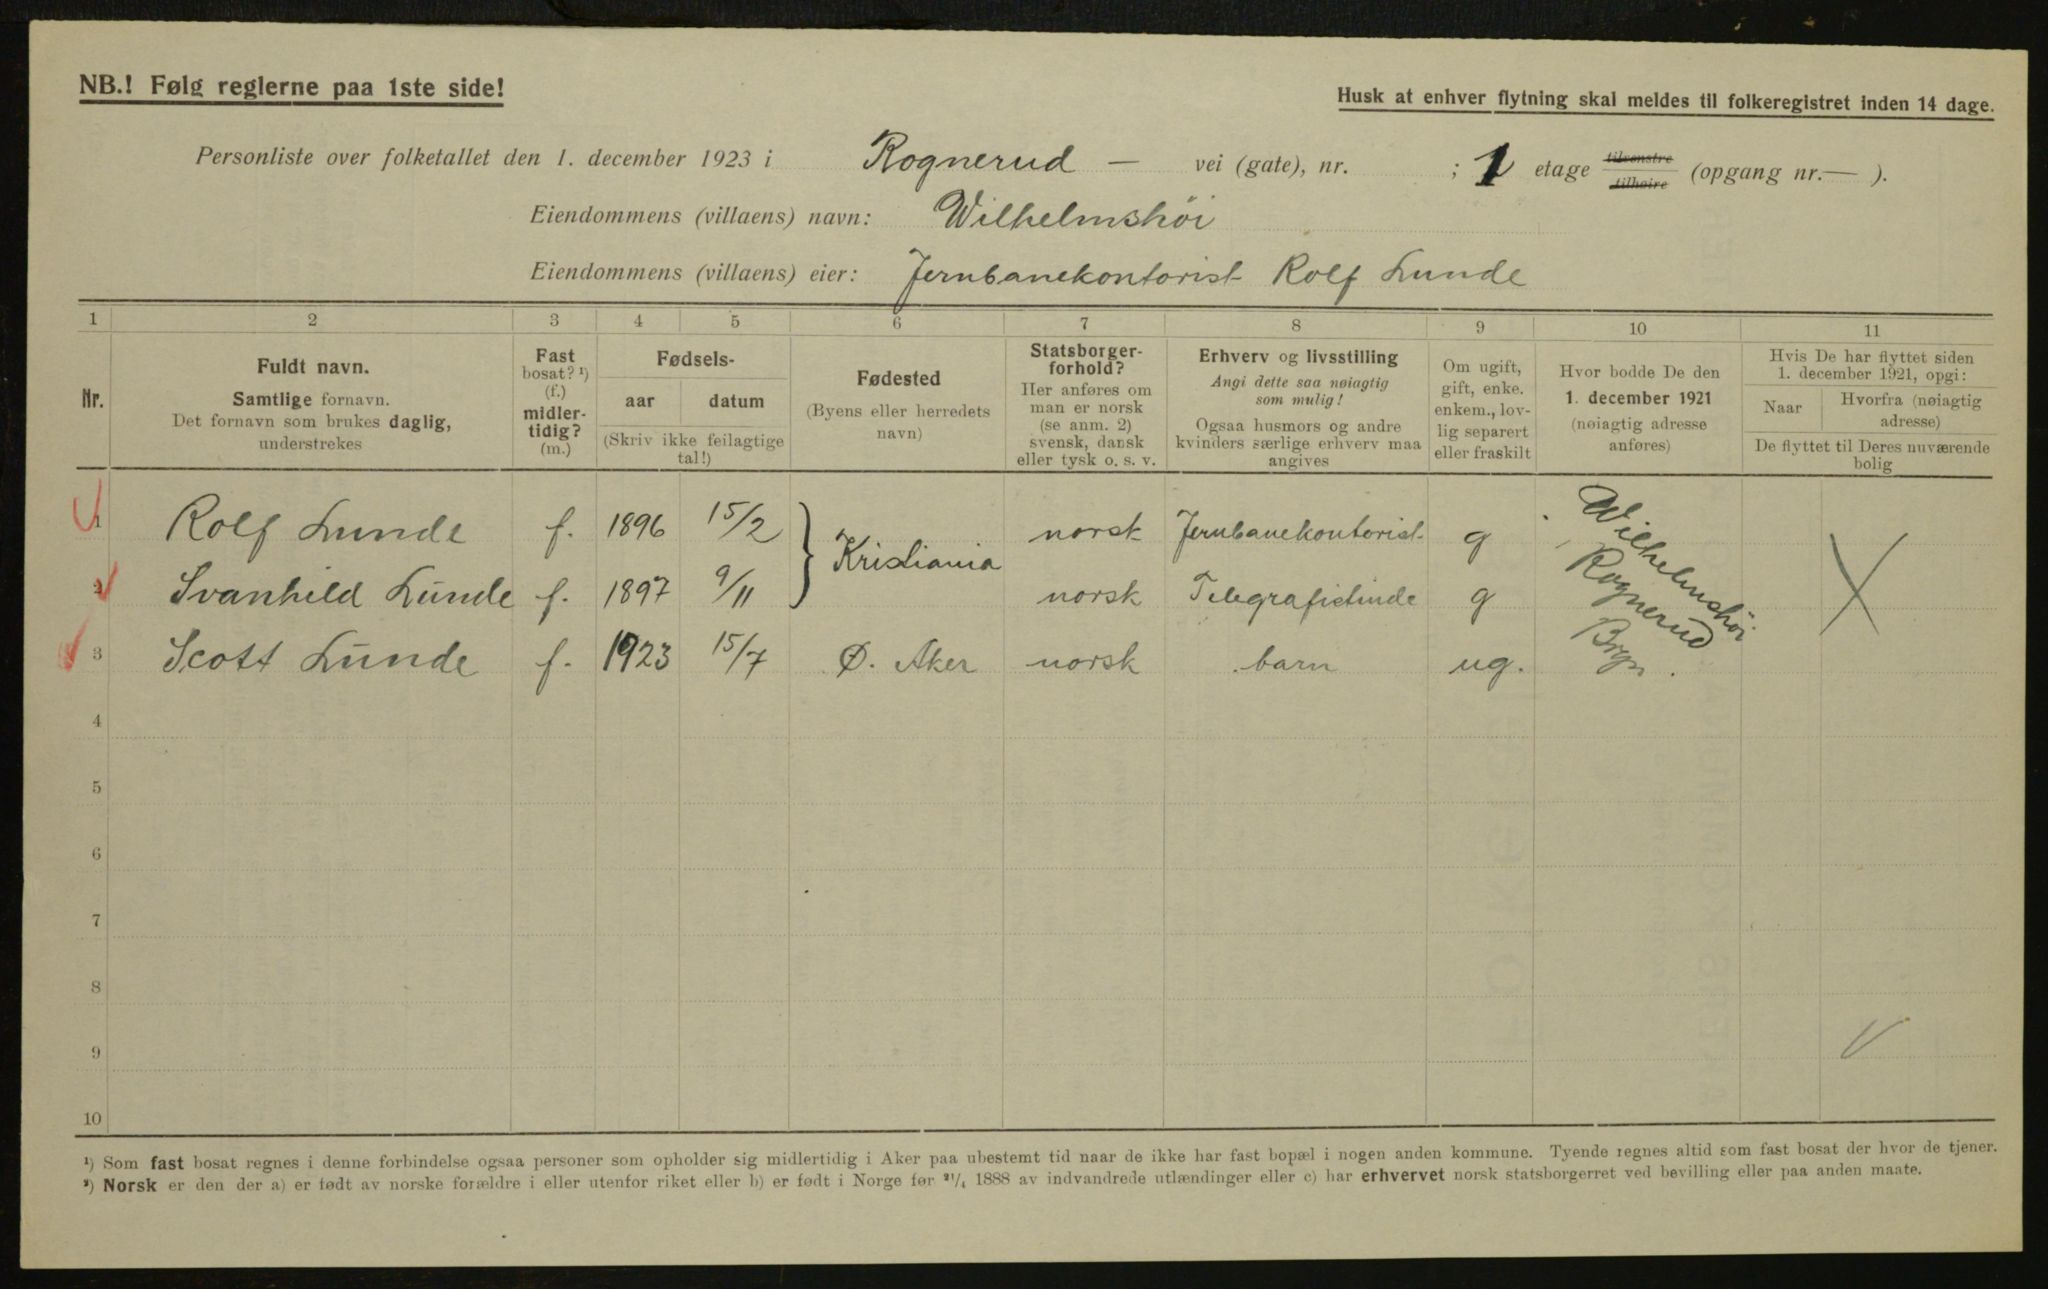 NB.! Følg reglerne paa 1ste side!
Husk at enhver flytning skal meldes til folkeregistret inden 14 dage.
Personliste over folketallet den 1. december 1923 i Rognerud — vei (gate), nr. ; 1 etage tilvenstre tilhøire (opgang nr. — ).
Eiendommens (villaens) navn: Wilhelmshöi
Eiendommens (villaens) eier: Jernbanekontorist Rolf Lunde
1 2 3 4 5 6 7 8 9 10 11
Nr.
Fuldt navn.
Samtlige fornavn.
Det fornavn som brukes daglig,
understrekes
Fast
bosat? ¹)
(f.)
midler-
tidig?
(m.)
Fødsels-
aar datum
(Skriv ikke feilagtige
tal!)
Fødested
(Byens eller herredets
navn)
Statsborger-
forhold?
Her anføres om
man er norsk
(se anm. 2)
svensk, dansk
eller tysk o. s. v.
Erhverv og livsstilling
Angi dette saa nøiagtig
som mulig!
Ogsaa husmors og andre
kvinders særlige erhverv maa
angives
Om ugift,
gift, enke.
enkem., lov-
lig separert
eller fraskilt
Hvor bodde De den
1. december 1921
(nøiagtig adresse
anføres)
Hvis De har flyttet siden
1. december 1921, opgi:
Naar
Hvorfra (nøiagtig
adresse)
De flyttet til Deres nuværende
bolig
1 Rolf Lunde f. 1896 15/2 } Kristiania norsk Jernbanekontorist g
2 Svanhild Lunde f. 1897 9/11 norsk Telegrafistinde g
3 Scott Lunde f. 1923 15/7 Ø. Aker norsk barn ug.
Wilhelmshöi
Rognerud
Bryn.
4
5
6
7
8
9
10
¹) Som fast bosat regnes i denne forbindelse ogsaa personer som opholder sig midlertidig i Aker paa ubestemt tid naar de ikke har fast bopæl i nogen anden kommune. Tyende regnes altid som fast bosat der hvor de tjener.
²) Norsk er den der a) er født av norske forældre i eller utenfor riket eller b) er født i Norge før ²¹/₄ 1888 av indvandrede utlændinger eller c) har erhvervet norsk statsborgerret ved bevilling eller paa anden maate.